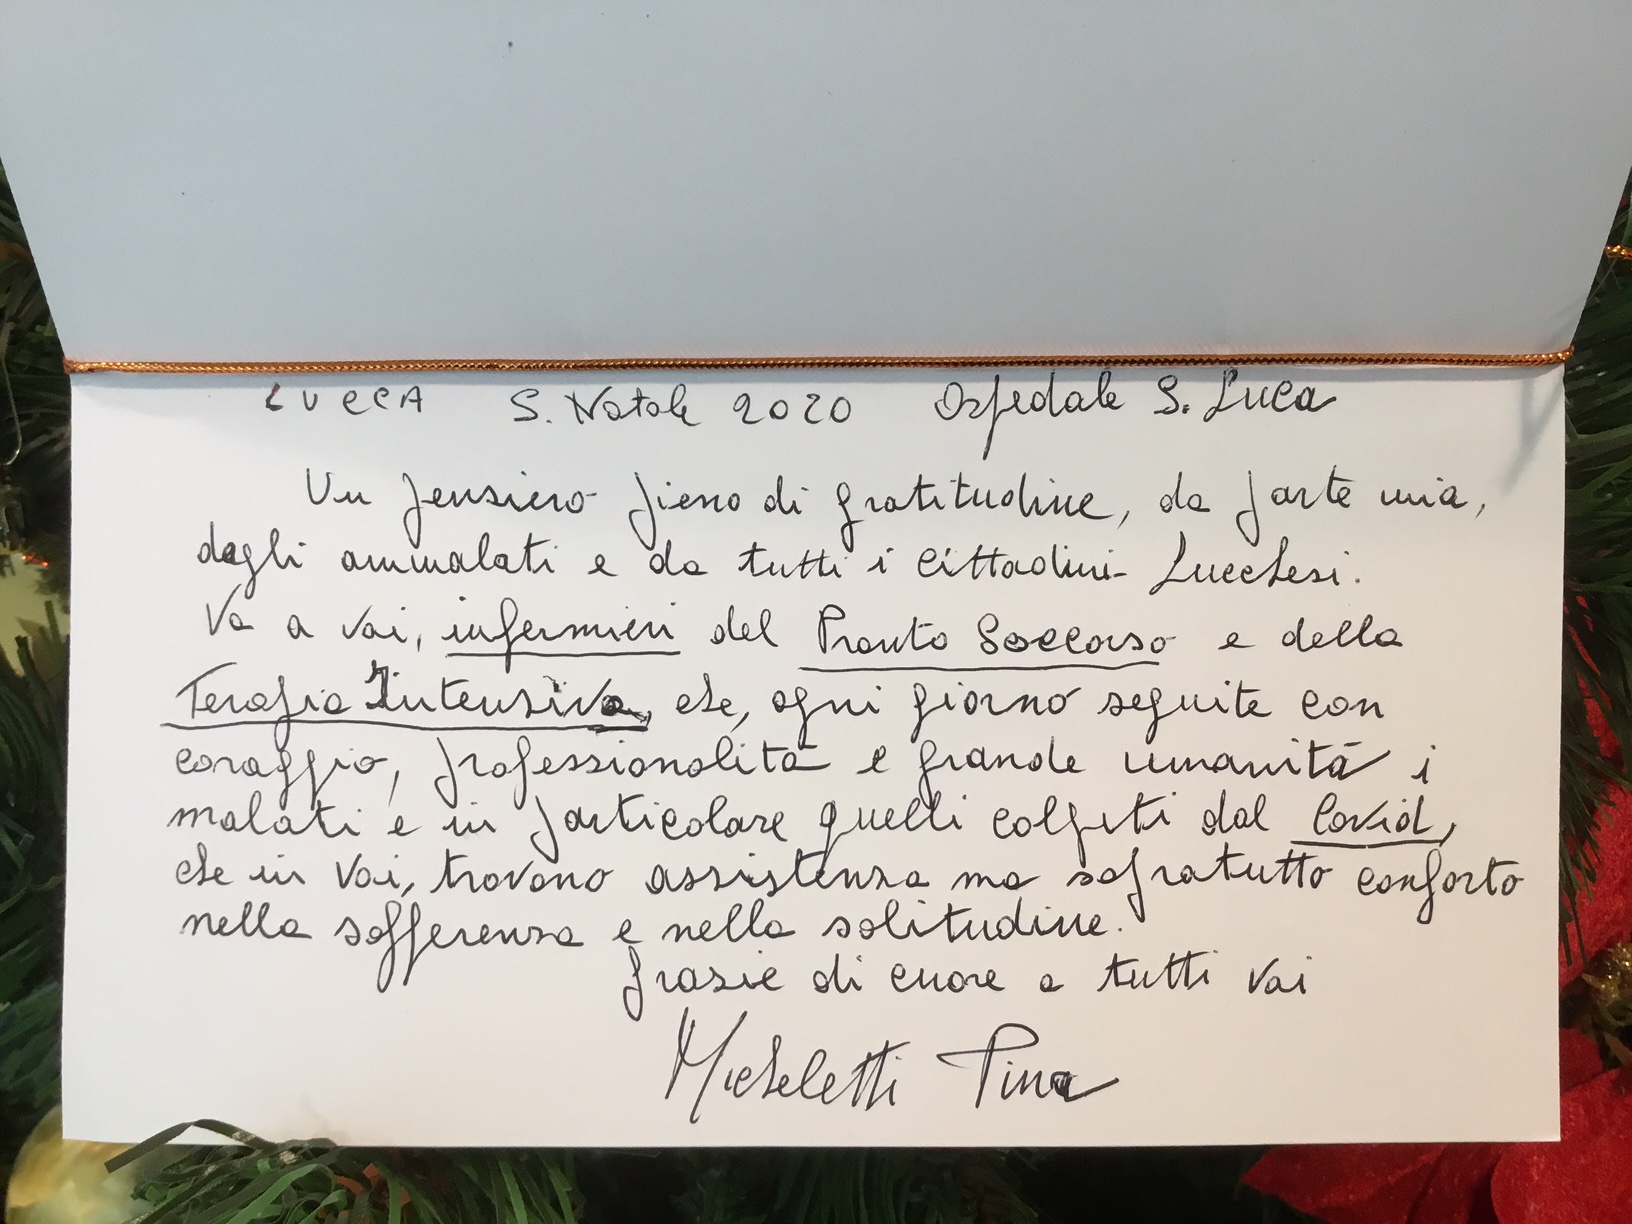 LUCCA S. Natale 2020 Ospedale S. Luca
Un pensiero pieno di gratitudine, da parte mia,
degli ammalati e da tutti i cittadini Lucchesi.
Va a voi, infermieri del Pronto Soccorso e della
Terapia Intensiva, che, ogni giorno seguite con
coraggio, professionalità e grande umanità i
malati e in particolare quelli colpiti dal Covid,
che in voi, trovano assistenza ma sopratutto conforto
nella sofferenza e nella solitudine.
Grazie di cuore a tutti voi
Micheletti Pina